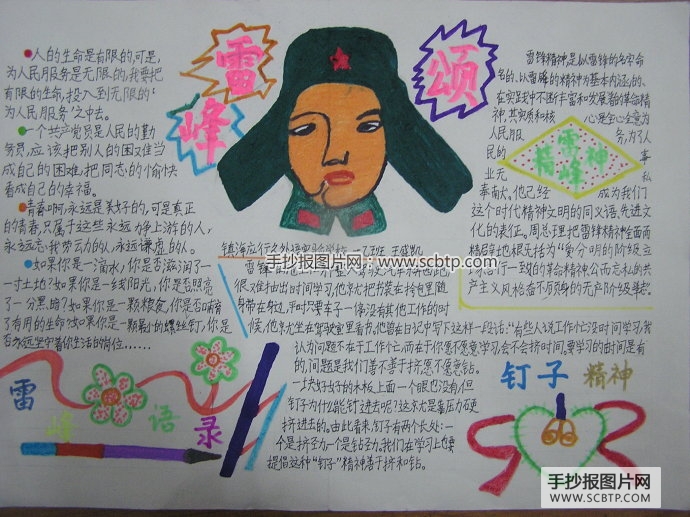 雷
锋
颂
人的生命是有限的,可是,
为人民服务是无限的,我要把
有限的生命,投入到无限的‘
为人民服务’之中去。
一个共产党员是人民的勤
务员,应该把别人的困难当
成自己的困难,把同志的愉快
看成自己的幸福。
青春啊,永远是美好的,可是真正
的青春,只属于这些永远力争上游的人,
永远忘我劳动的人,永远谦虚的人。
如果你是一滴水,你是否滋润了一
寸土地?如果你是一线阳光,你是否照亮
了一分黑暗?如果你是一颗粮食,你是否哺育
了有用的生命?如果你是一颗最小的螺丝钉,你是
否永远坚守着你生活的岗位……
雷
锋
语
录
雷锋精神是以雷锋的名字命
名的、以雷锋的精神为基本内涵的、
在实践中不断丰富和发展着的革命精
神,其实质和核心是全心全意为
人民服务,为了人
民的事
业无私
奉献。他已经成为我们
这个时代精神文明的同义语、先进文
化的表征。周总理把雷锋精神全面而
精辟地概括为“爱分明的阶级立
一致的革命精神公而忘私的共
产主义风格奋不顾身的无产阶级斗志。
雷锋精神
很难抽出时间学习,他就把书装在挎包里随
身带在身边,
车子一停没有其他工作的时
候,他就坐在驾驶室里看书,他曾在日记中写下这样一段话:“有些人说工作忙没时间学习,我
认为问题不在于工作忙,而在于你愿不愿意学习,会不会挤时间,要学习的时间是有
的,问题是我们善不善于挤,愿不愿意钻。
一块好好的木板,上面一个眼也没有,但
钉子为什么能钉进去呢?这就是靠压力硬
挤进去的。由此看来,钉子有两个长处:一
个是挤劲,一个是钻劲。我们在学习上也要
提倡这种“钉子”精神善于挤和钻。
钉子精神
手抄报图片网--www.scbtp.com
手抄报图片网
WWW.SCBTP.COM